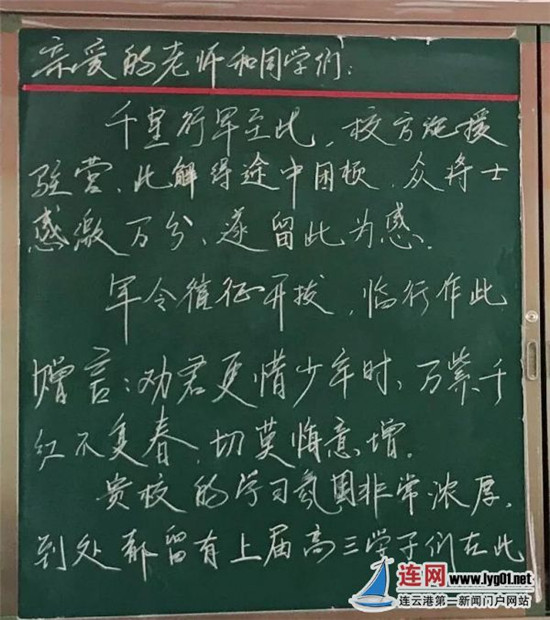 亲爱的老师和同学们:
千里行军至此,校方施援
驻营、此解得途中困顿、众将士
感激万分、遂留此为感.
军令催征开拔,临行作此
赠言:劝君更惜少年时、万紫千
红不复春,切莫悔意增.
贵校的学习氛围非常浓厚,
到处都留有上届高三学子们在此
连网www.lyg01.net
连云港第一新闻门户网站